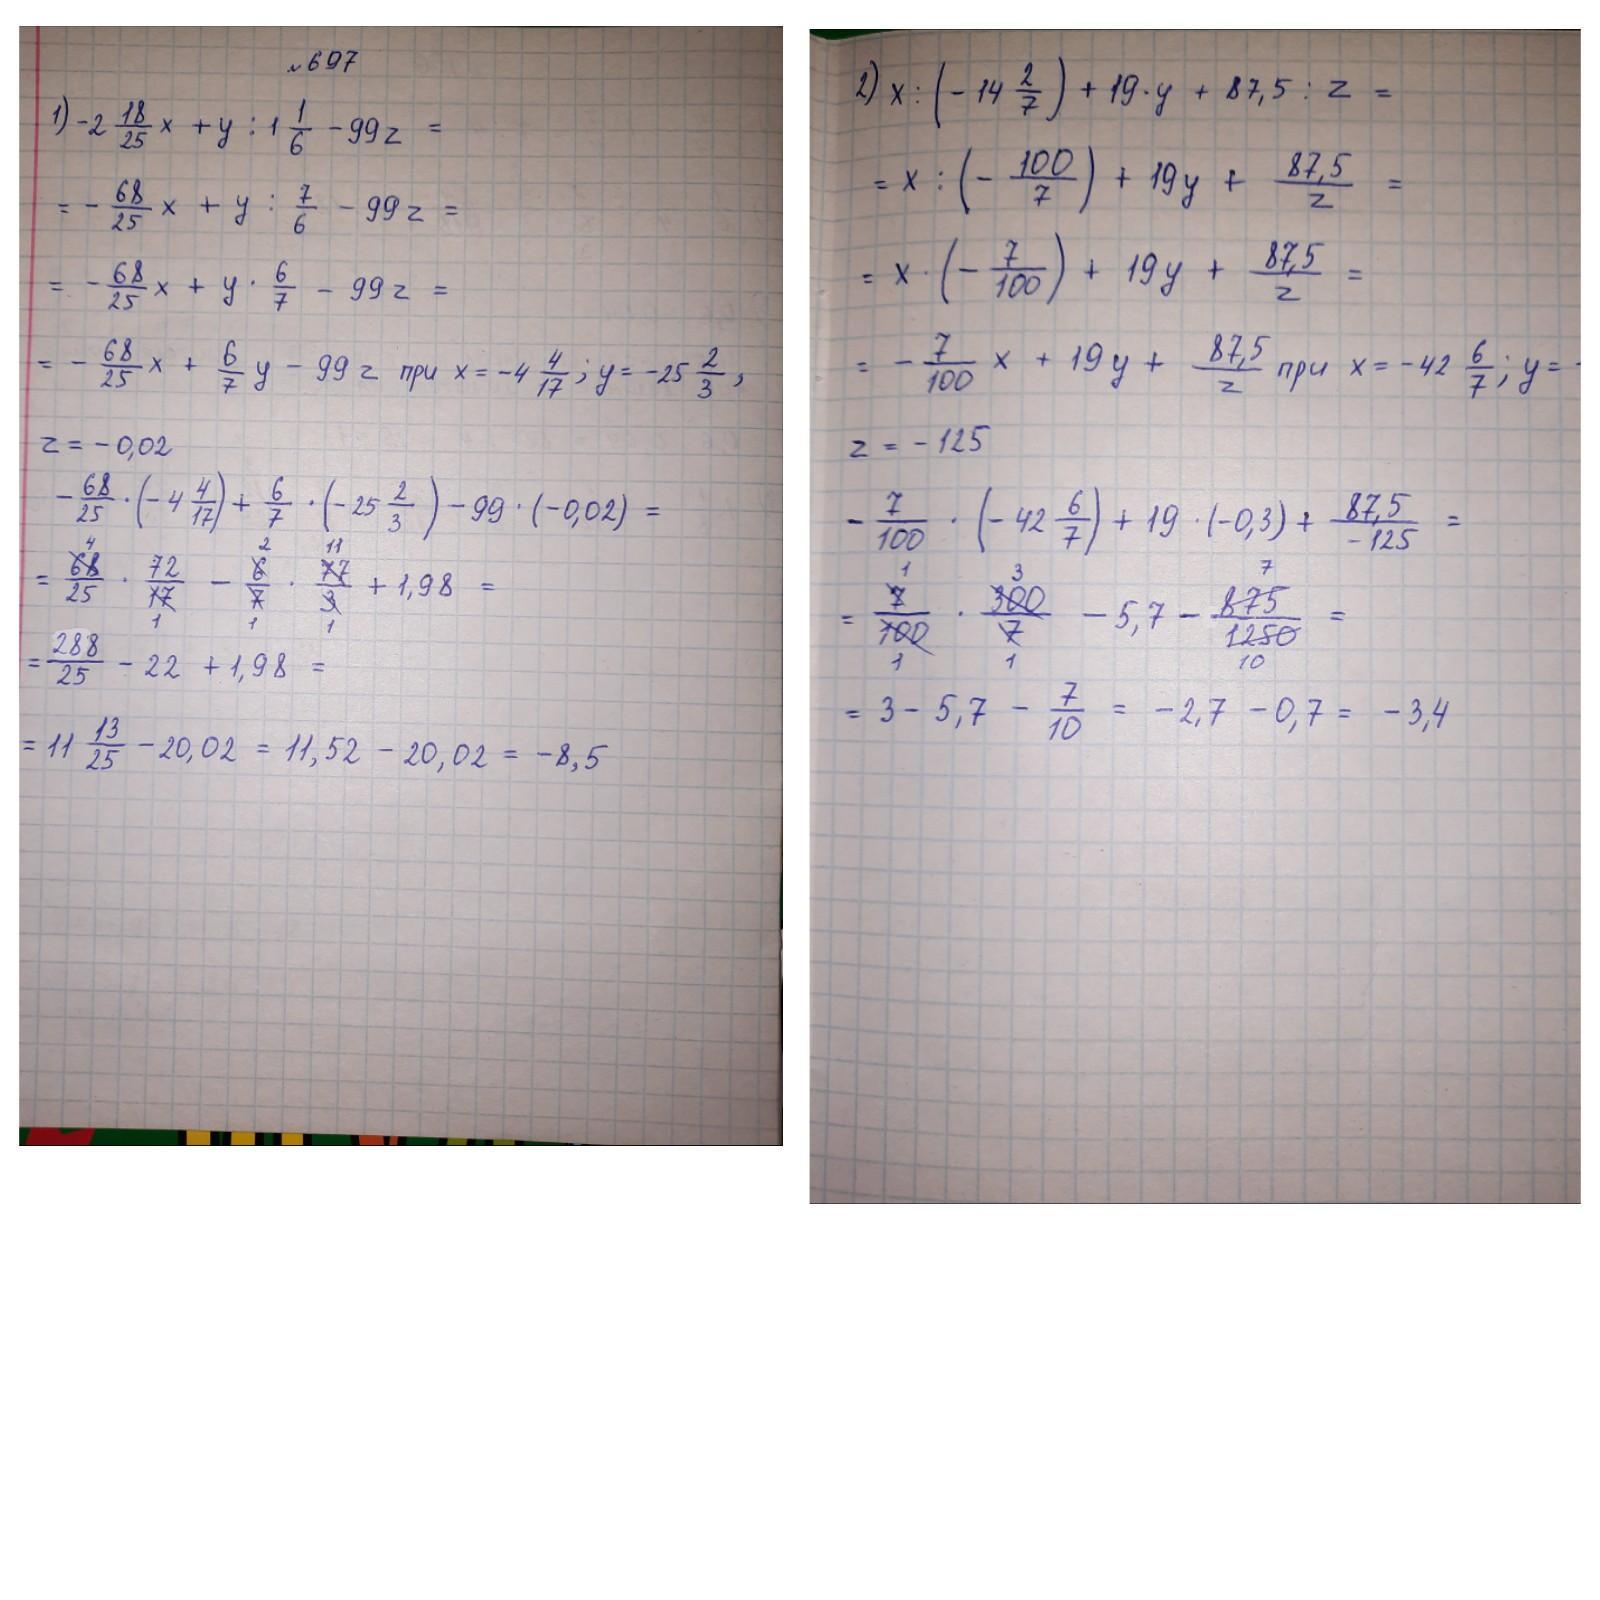 №697
1) -2 18/25 x + y : 1 1/6 - 99z =
= - 68/25 x + y : 7/6 - 99z =
= - 68/25 x + y · 6/7 - 99z =
= - 68/25 x + 6/7 y - 99z при x = -4 4/17; y = -25 2/3,
z = -0,02
- 68/25 · (-4 4/17) + 6/7 · (-25 2/3) - 99 · (-0,02) =
4 2 11
= 68/25 · 72/17 - 6/7 · 77/3 + 1,98 =
1 1 1
= 288/25 - 22 + 1,98 =
= 11 13/25 - 20,02 = 11,52 - 20,02 = -8,5
2) x : (-14 2/7) + 19·y + 87,5 : z =
= x : (- 100/7) + 19y + 87,5/z =
= x · (- 7/100) + 19y + 87,5/z =
= - 7/100 x + 19y + 87,5/z при x = -42 6/7; y = -
z = -125
- 7/100 · (-42 6/7) + 19 · (-0,3) + 87,5/-125 =
1 3 7
= 7/100 · 300/7 - 5,7 - 875/1250 =
1 1 10
= 3 - 5,7 - 7/10 = -2,7 - 0,7 = -3,4